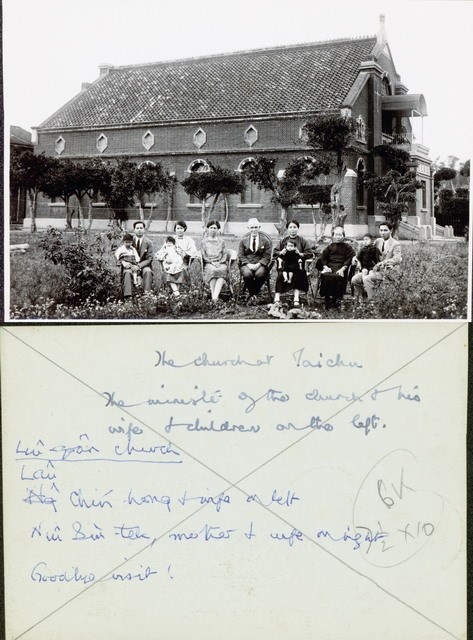 The church at Taichu
The ministe of the church & his
wife & children on the left.
Liú-goân church
Lâu
Chin hong & wife on left
Niû Sìn-tek, mother & wife on right
Goodbye visit!
6K
½ X10